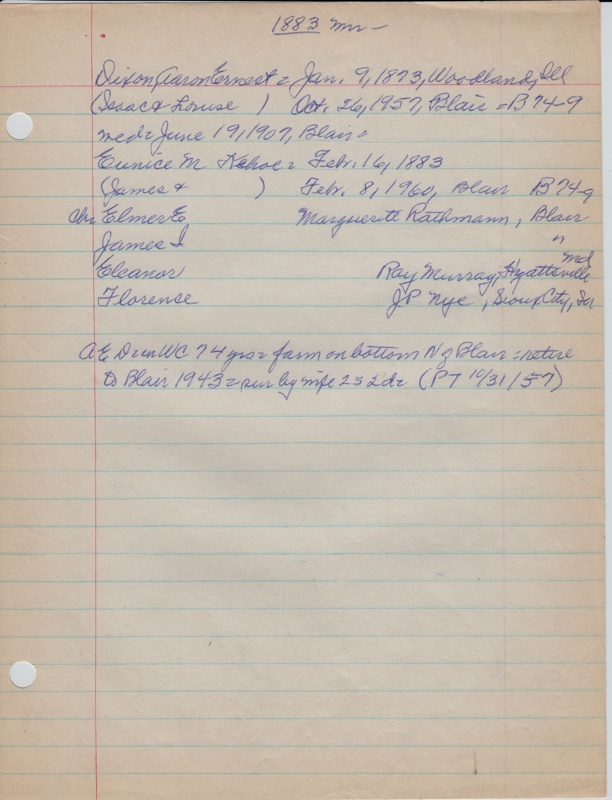 1883 mr -
Dixon, Aaron Ernest = Jan. 9, 1873, Woodland, Ill
(Isaac & Louise ) Oct. 26, 1957, Blair = B 74-9
med = June 19, 1907, Blair =
Eunice M. Kehoe = Feb. 16, 1883
(James & ) Feb. 8, 1960, Blair B 74-9
chr Elmer E Marguerite Rathmann, Blair
James I "
Eleanor Ray Murray, Hyattsville Md
Florence J.P Nye, Sioux City, Ia
A E D in WC 74 yrs = farm on bottom N of Blair = retire
to Blair 1943 = sur by wife 2s 2d = (PT 10/31/57)